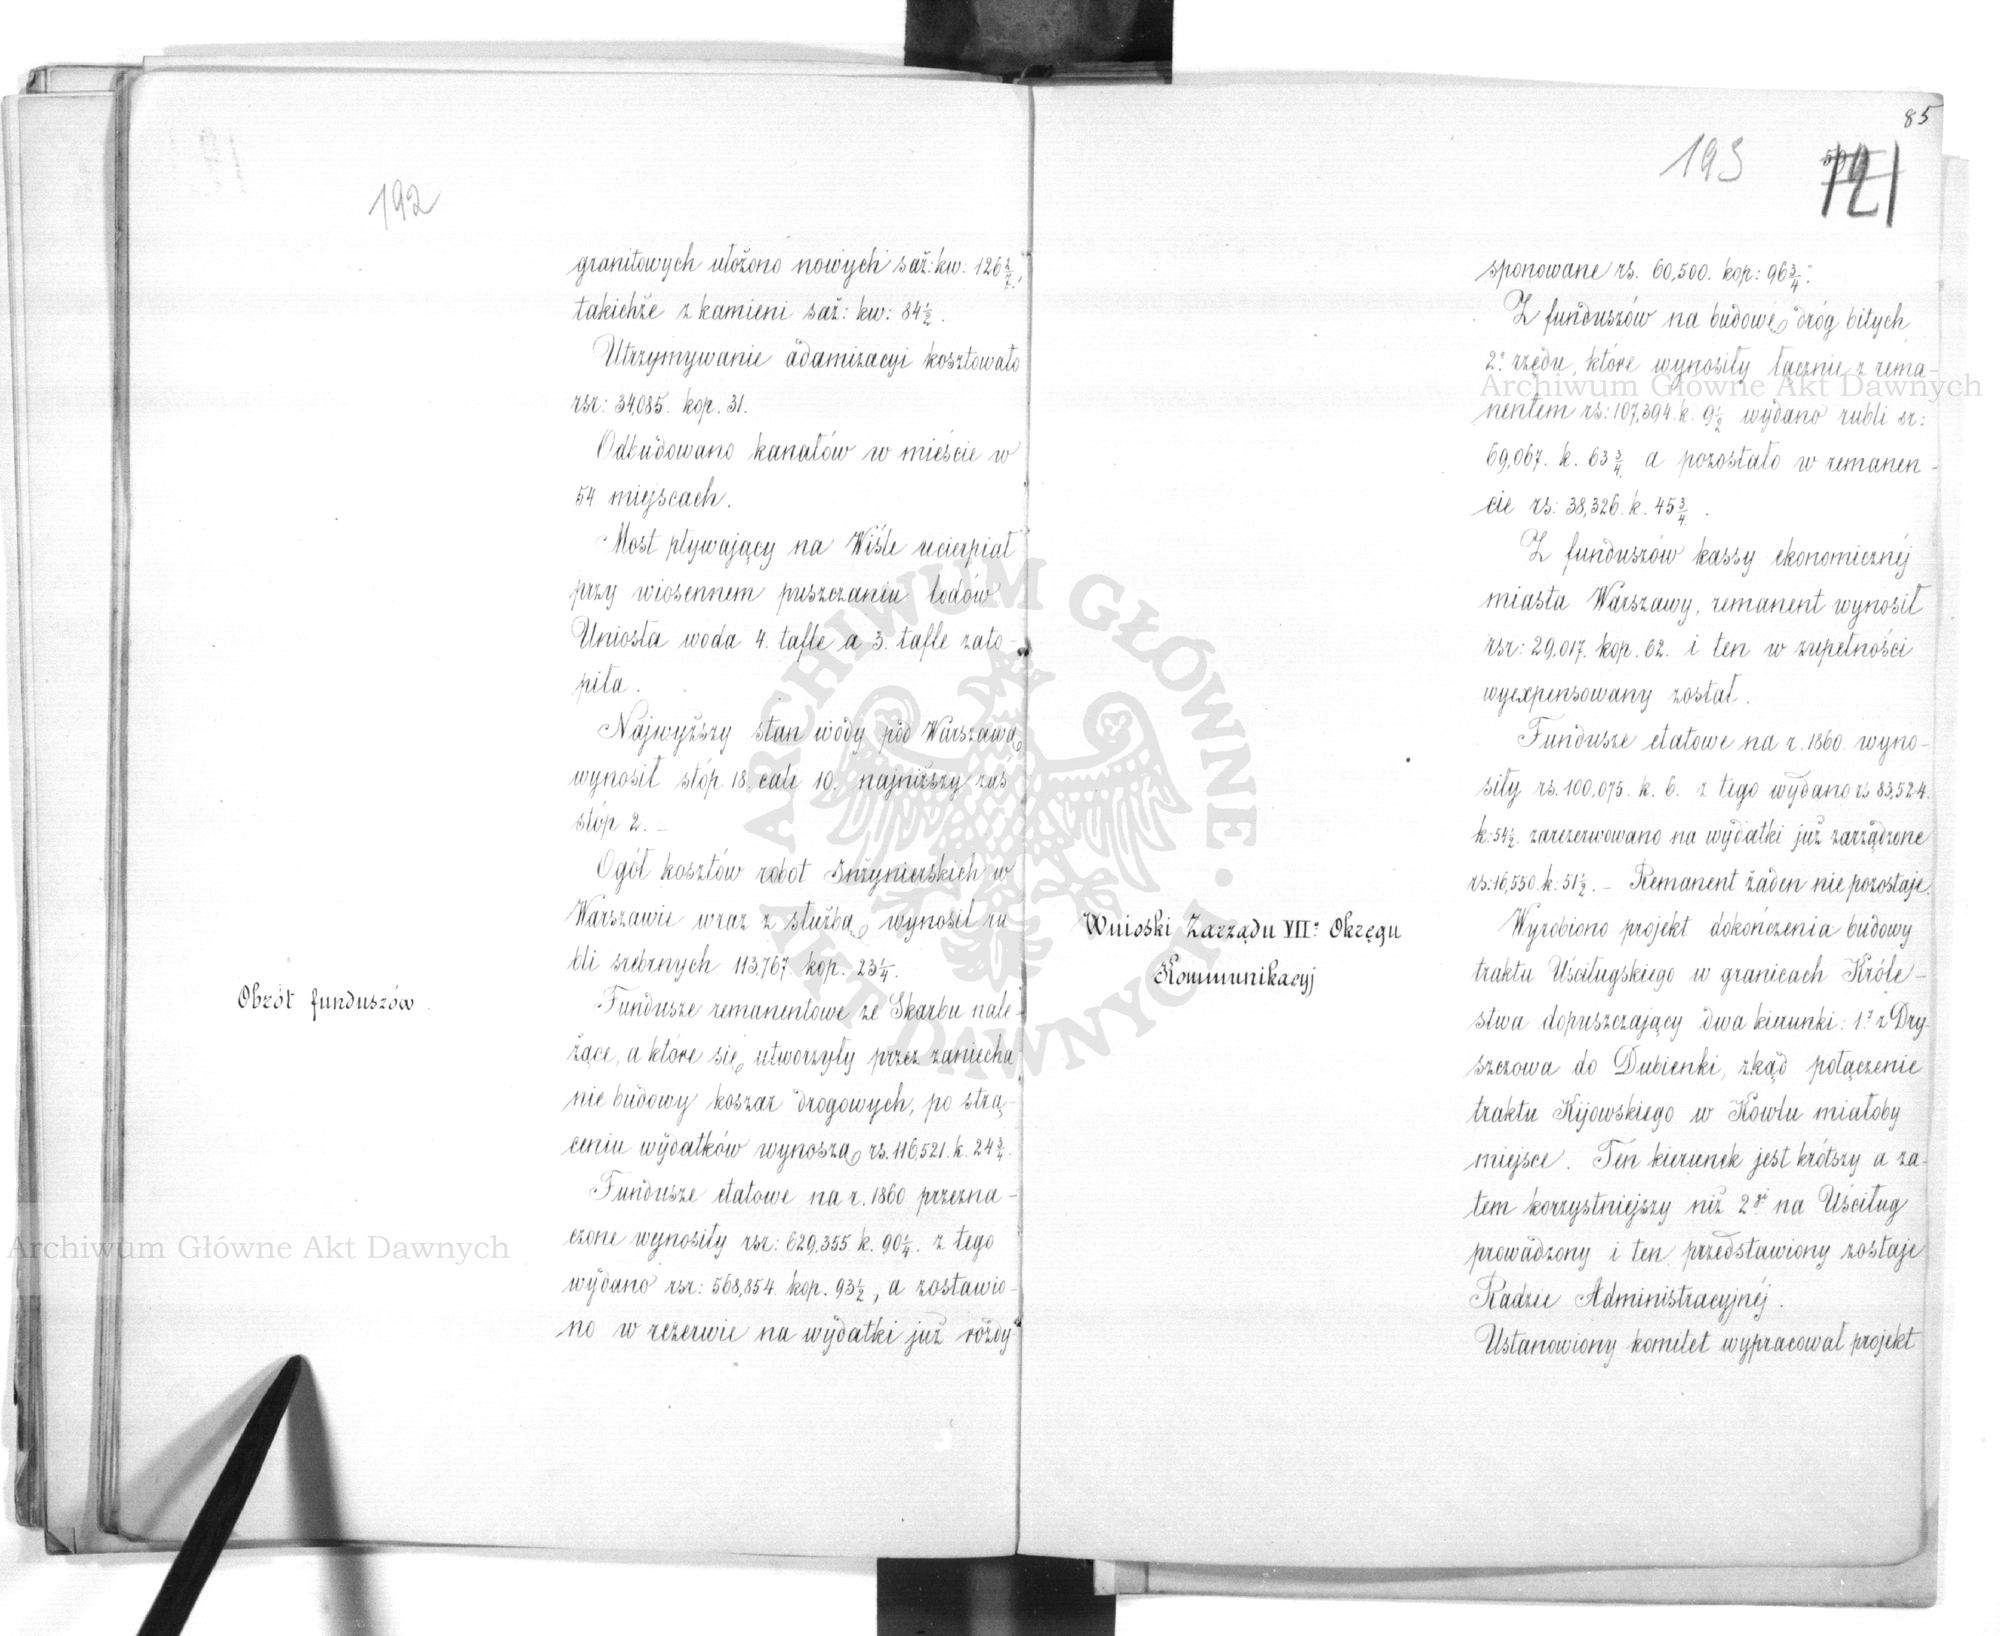 192
granitowych ułożono nowych saż: kw: 126 2/7,
takichże z kamieni saż: kw: 84 1/2.
Utrzymywanie adamizacyi kosztowało
rsr: 34,085. kop. 31.
Odbudowano kanałów w mieście w
54 miejscach.
Most pływający na Wiśle ucierpiał
przy wiosennem puszczaniu lodów
Uniosła woda 4. tafle a 3. tafle zato-
piła.
Najwyższy stan wody pod Warszawą
wynosił stóp 18. cali 10. najniższy zaś
stóp 2. –
Ogół kosztów robot Inżynierskich w
Warszawie wraz z służbą wynosił ru
bli srebrnych 113,767. kop. 23 1/4.
Obrót funduszów.
Fundusze remanentowe ze Skarbu nale-
żące, a które się utworzyły przez zaniecha
nie budowy koszar drogowych, po strą-
ceniu wydatków wynoszą rs. 116,521. k. 24 3/4.
Fundusze etatowe na r. 1860 przezna-
czone wynosiły rsr: 629,355. k. 90 1/4. z tego
wydano rsr: 568,854. kop. 93 1/2, a zostawio-
no w rezerwie na wydatki już rozdy
85
193
121
sponowane rs. 60,500. kop: 96 3/4.
Z funduszów na budowę dróg bitych
2o rzędu, które wynosiły łącznie z rema-
nentem rs: 107,394. k. 9 1/2 wydano rubli sr:
69,067. k. 63 3/4. a pozostało w remanen-
cie rs: 38,326. k. 45 3/4.
Z funduszów kassy ekonomicznéj
miasta Warszawy, remanent wynosił
rsr: 29,017. kop. 62. i ten w zupełności
wyexpensowany został.
Fundusze etatowe na r. 1860 wyno-
siły rs. 100,075. k. 6. z tego wydano rs 83,524.
k: 54 1/2. zarezerwowano na wydatki już zarządzone
rs: 16,550. k: 51 1/2. – Remanent żaden nie pozostaje.
Wnioski Zarządu VIIo Okręgu
Kommunikacyj
Wyrobiono projekt dokończenia budowy
traktu Uściługskiego w granicach Króle-
stwa dopuszczający dwa kierunki: 1o z Dry-
szczowa do Dubienki, zkąd połączenie
traktu Kijowskiego w Kowlu miałoby
miejsce. Ten kierunek jest krótszy a za-
tem korzystniejszy niż 2gi na Uściług
prowadzony i ten przedstawiony zostaje
Radzie Administracyjnéj.
Ustanowiony komitet wypracował projekt
Archiwum Główne Akt Dawnych
Archiwum Główne Akt Dawnych
ARCHIWUM GŁÓWNE AKT DAWNYCH